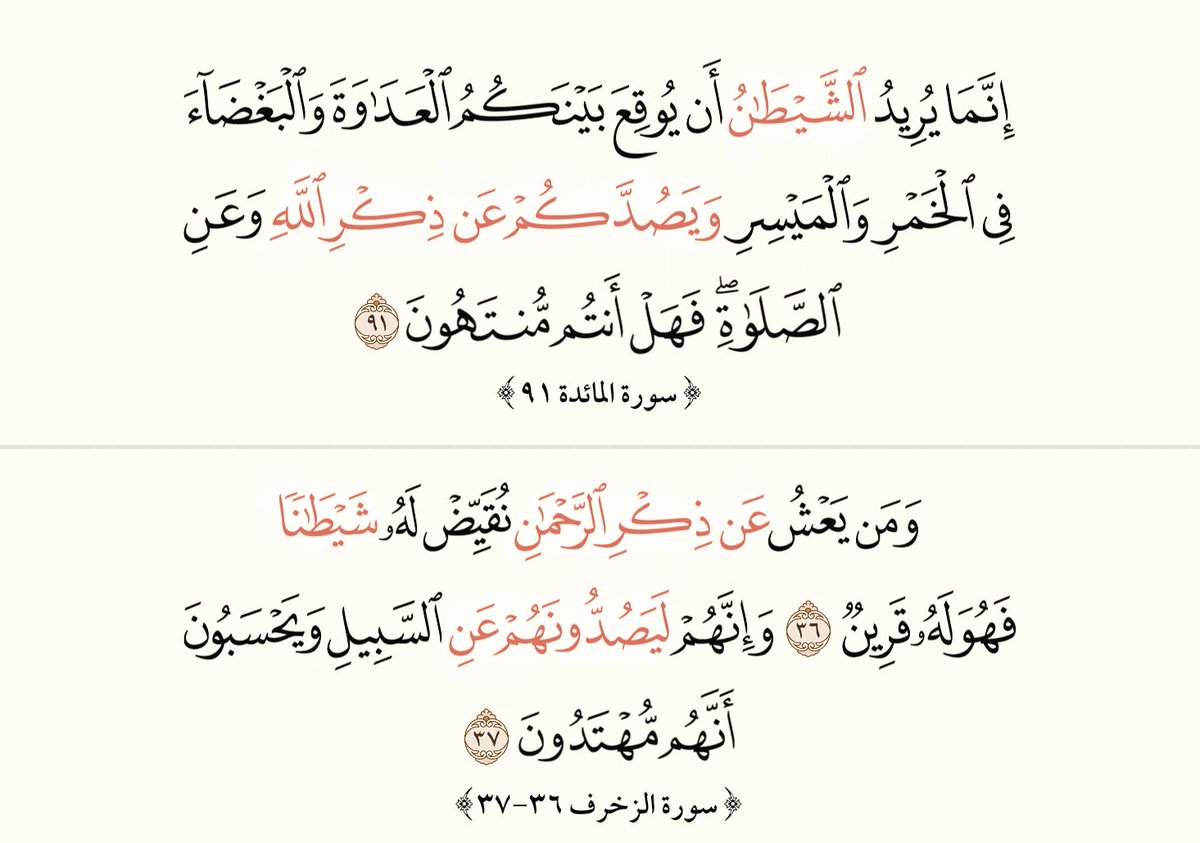 إِنَّمَا يُرِيدُ ٱلشَّيْطَٰنُ أَن يُوقِعَ بَيْنَكُمُ ٱلْعَدَٰوَةَ وَٱلْبَغْضَآءَ
فِى ٱلْخَمْرِ وَٱلْمَيْسِرِ وَيَصُدَّكُمْ عَن ذِكْرِ ٱللَّهِ وَعَنِ
ٱلصَّلَوٰةِ ۖ فَهَلْ أَنتُم مُّنتَهُونَ ٩١
﴿سورة المائدة ٩١﴾
وَمَن يَعْشُ عَن ذِكْرِ ٱلرَّحْمَٰنِ نُقَيِّضْ لَهُۥ شَيْطَٰنًا
فَهُوَ لَهُۥ قَرِينٌ ٣٦ وَإِنَّهُمْ لَيَصُدُّونَهُمْ عَنِ ٱلسَّبِيلِ وَيَحْسَبُونَ
أَنَّهُم مُّهْتَدُونَ ٣٧
﴿سورة الزخرف ٣٦-٣٧﴾